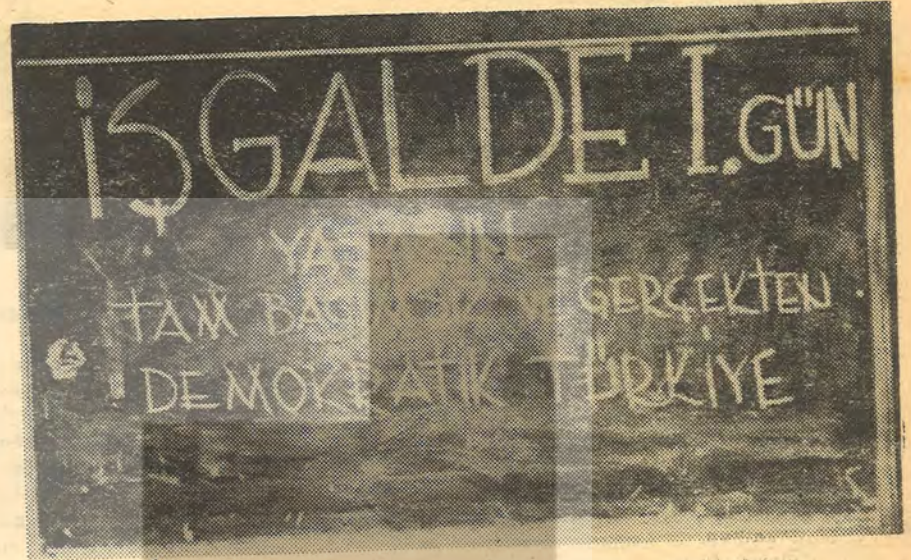 İŞGALDE I. GÜN
YAŞASIN
TAM BAĞIMSIZ VE GERÇEKTEN
DEMOKRATİK TÜRKİYE